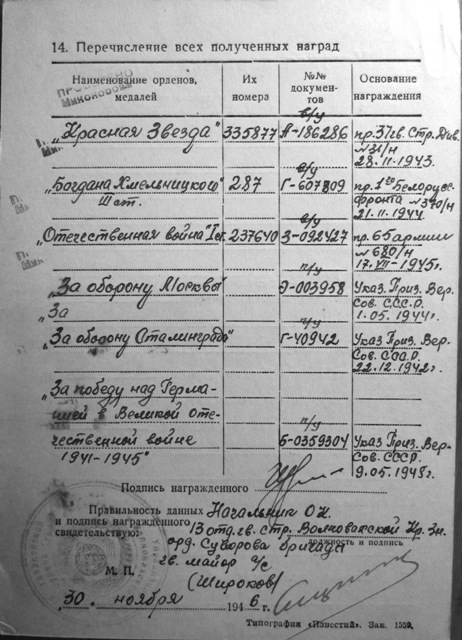 14. Перечисление всех полученных наград
Наименование орденов, медалей
Их номера
№№ документов
Основание награждения
в/у
„Красная Звезда" 335877 А-186286 пр. 37 гв. Стр. Див.
№ 31/н
28.II-1943.
в/у
„Богдана Хмельницкого" 287 Г-607809 пр. 1го Белорус-
III ст. фронта № 390/н
21.11.1944.
в/у
„Отечественная война" I ст. 237640 З-092427 пр. 65 армии
№ 680/н
17.VII-1945г.
п/у
„За оборону Москвы" Э-003958 Указ. През. Вер.
„За Сов. С.С.Р.
п/у 1.05.1944г.
„За оборону Сталинграда" Г-40942 Указ През. Вер.
Сов. СССР.
22.12.1942г.
„За победу над Герма-
нией в Великой Оте- п/у
чественной войне Б-0359304 Указ През. Вер-
1941-1945" Сов. СССР.
9.05.1945г.
Подпись награжденного
Правильность данных Начальник
и подпись награжденного 13 отд. гв. стр. Волковысской Кр. Зн.
свидетельствую: орд. Суворова бригады
должность и подпись
гв. майор а/с
М. П. (Широков)
„30." ноября 1946 г.
Типография «Известий». Зак. 1559.